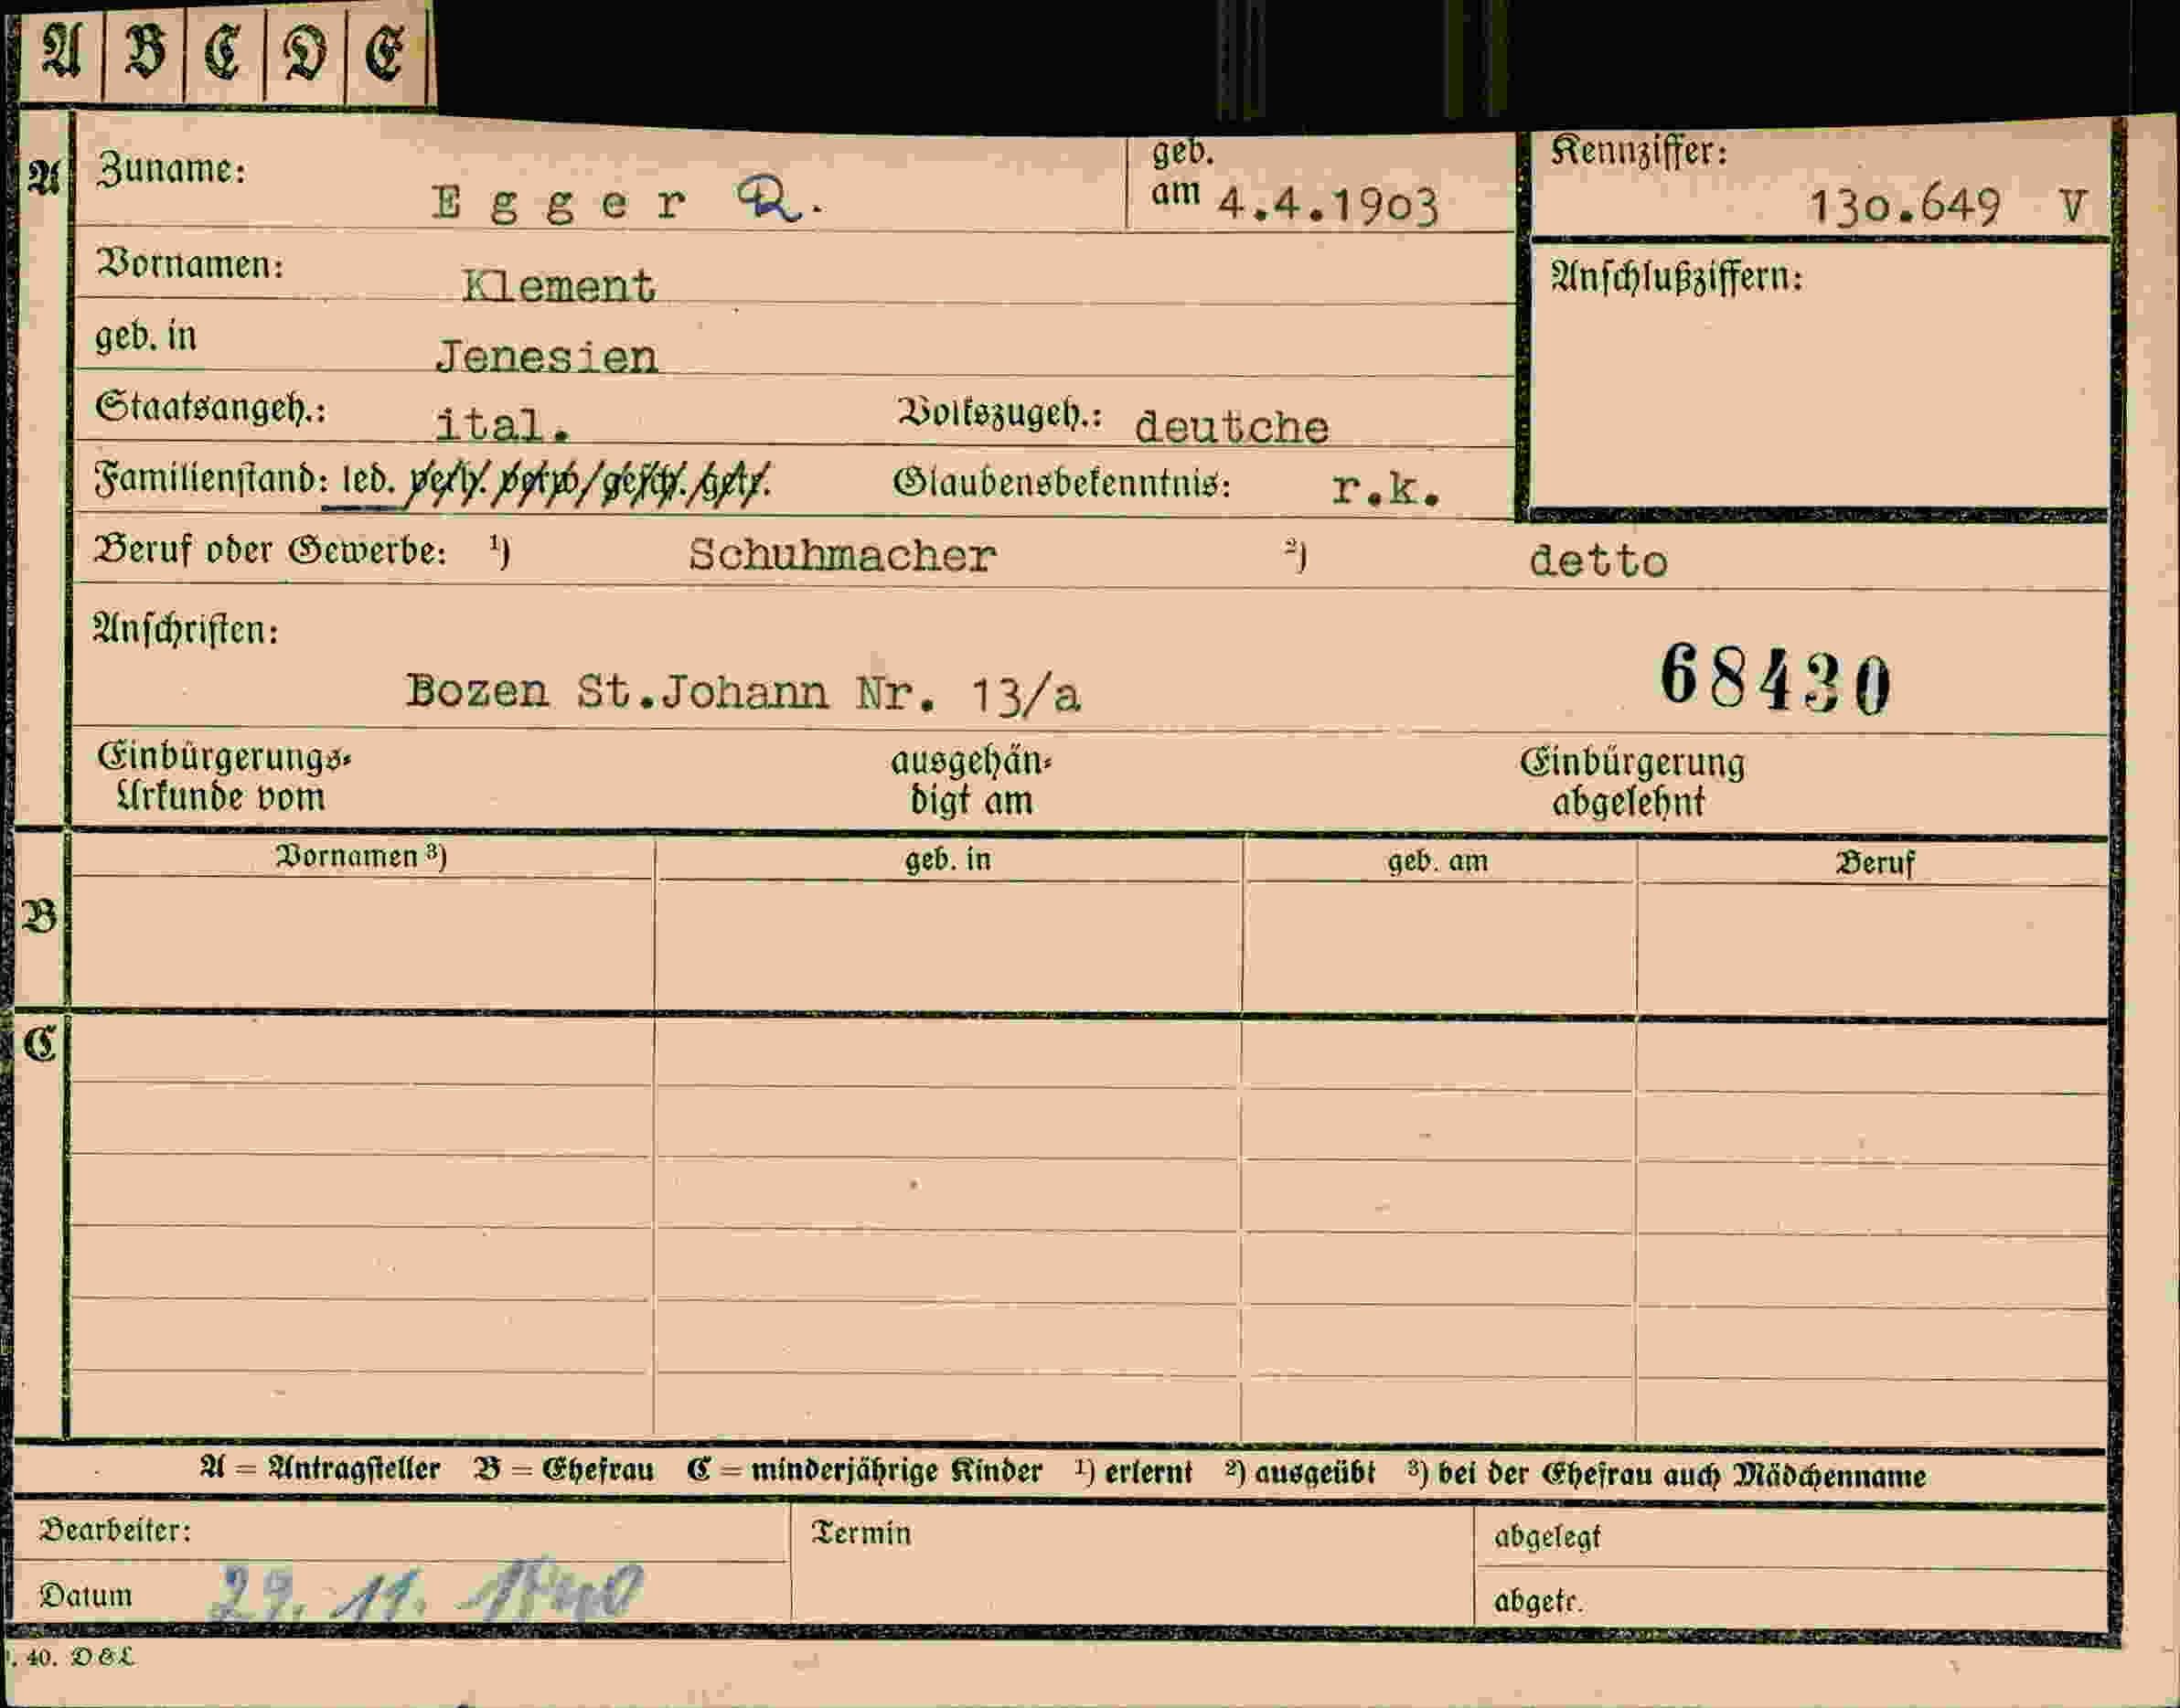 A B C D E
A Zuname: Egger R. geb. am 4.4.1903 Kennziffer: 130.649 V
Vornamen: Klement Anschlußziffern:
geb. in Jenesien
Staatsangeh.: ital. Volkszugeh.: deutche
Familienstand: led. verh. verw. gesch. getr. Glaubensbekenntnis: r.k.
Beruf oder Gewerbe: 1) Schuhmacher 2) detto
Anschriften:
Bozen St.Johann Nr. 13/a 68430
Einbürgerungs- ausgehän- Einbürgerung
Urkunde vom digt am abgelehnt
Vornamen 3) geb. in geb. am Beruf
B
C
A = Antragsteller B = Ehefrau C = minderjährige Kinder 1) erlernt 2) ausgeübt 3) bei der Ehefrau auch Mädchenname
Bearbeiter: Termin abgelegt
Datum 29. 11. 1940 abgetr.
. 40. D&L